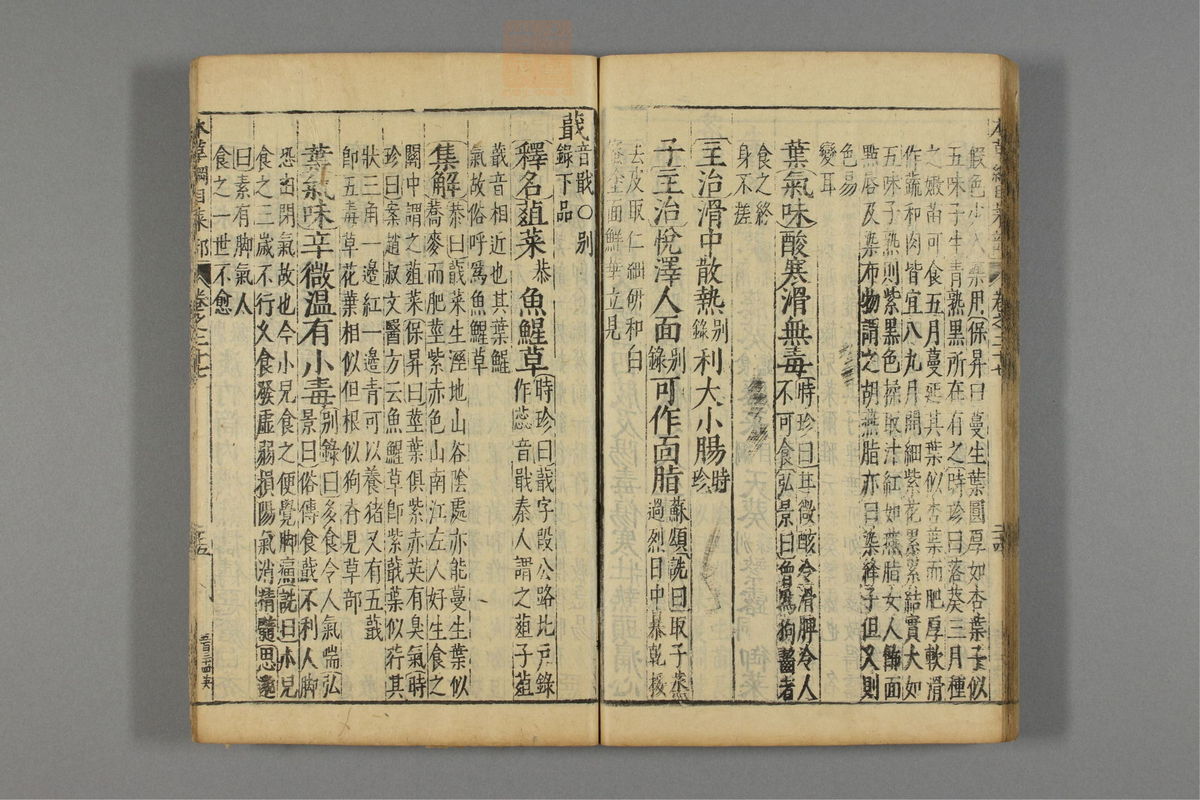 五味子生青熟黑所在有之時珍曰落葵三月種
之嫩苗可食五月蔓延其葉似杏葉而肥厚軟滑
作蔬和肉皆宜八九月開細紫花累累結實大如
五味子熟則紫黑色揉取汁紅如燕脂女人飾面
點唇及染布物謂之胡燕脂亦曰染絳子但久則
色易
變耳
葉氣味酸寒滑無毒時珍曰甘微酸冷滑脾冷人
不可食弘景曰曾爲狗齧者
食之終
身不瘥
主治滑中散熱別錄利大小腸時珍
子主治悅澤人面別錄可作面脂蘇頌詵曰取子蒸
過烈日中暴乾挼
去皮取仁細研和白
面鮮華立見
蕺音戢○別
錄下品
釋名葅菜恭魚鯹草時珍曰蕺字段公路北戶錄
作蕊音戢秦人謂之葅子葅
蕺音相近也其葉鯹
氣故俗呼爲魚鯹草
集解恭曰蕺菜生溼地山谷陰處亦能蔓生葉似
蕎麥而肥莖紫赤色山南江左人好生食之
關中謂之葅菜保昇曰莖葉俱紫赤英有臭氣時
珍曰案趙叔文醫方云魚鯹草即紫蕺葉似荇其
狀三角一邊紅一邊青可以養猪又有五蕺
即五毒草花葉相似但根似狗脊見草部
葉氣味辛微温有小毒別錄曰多食令人氣喘弘
景曰俗傳食蕺不利人脚
恐由閉氣故也今小兒食之便覺脚痛詵曰小兒
食之三歲不行久食發虛弱損陽氣消精髓思邈
曰素有脚氣人
食之一世不愈